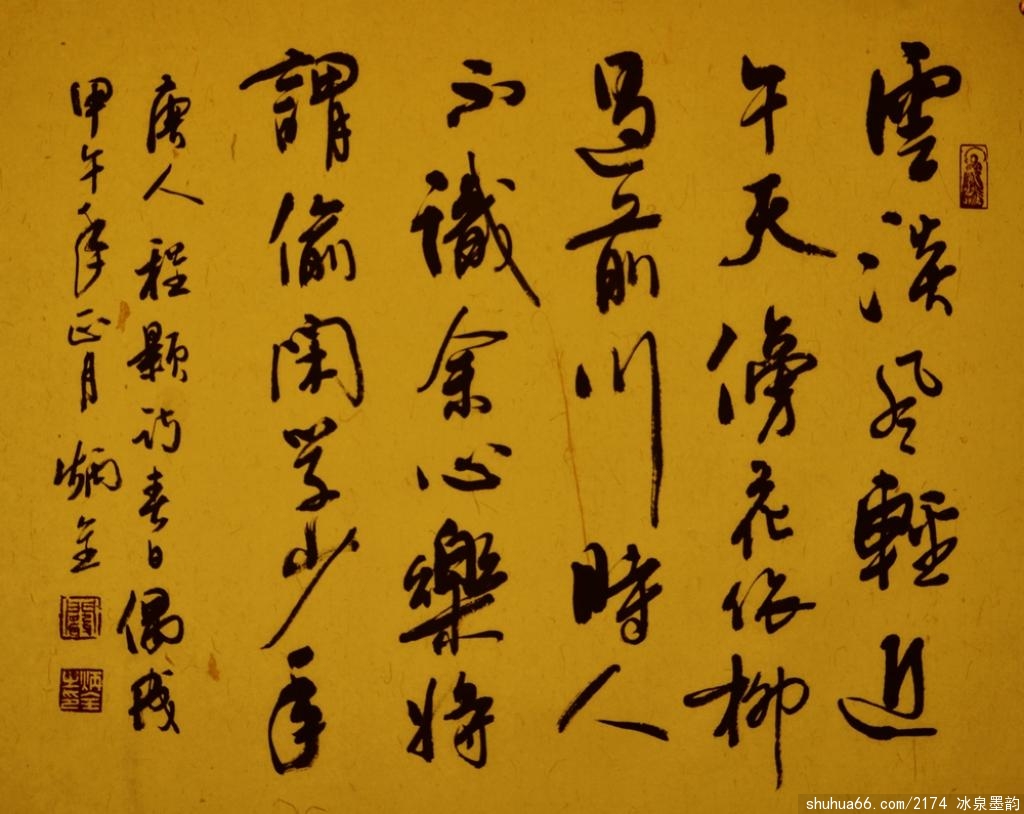 雲淡風輕近
午天傍花依柳
過前川時人
不識余心樂將
謂偷閑學少年
唐人程顥詩春日偶成
甲午年正月炳全
shuhua66.com/2174 冰泉墨韵